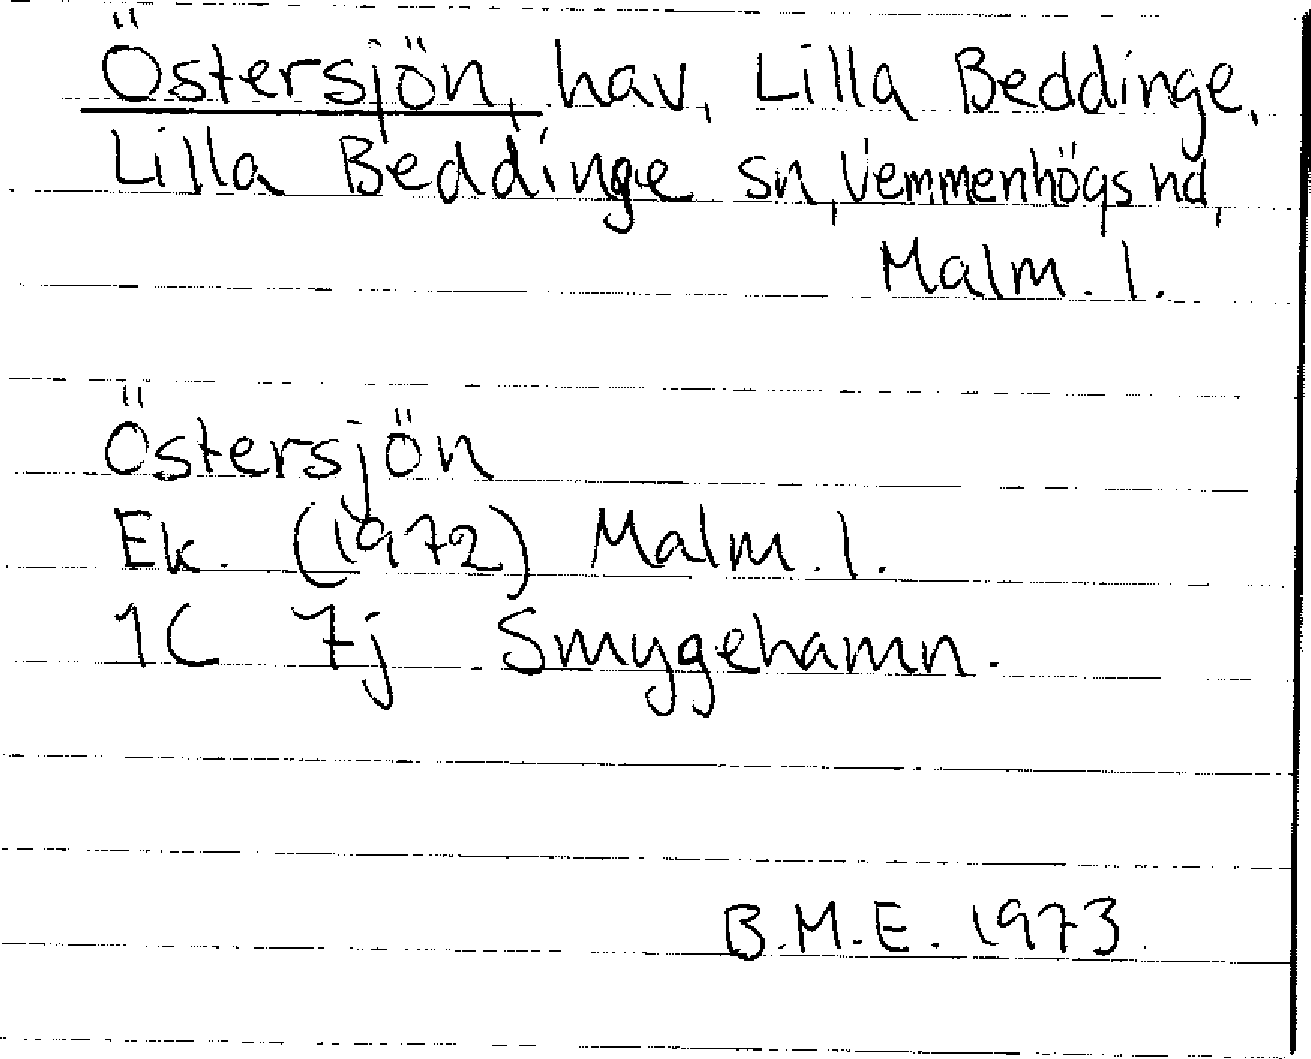 Östersjön, hav, Lilla Beddinge,
Lilla Beddinge sn, Vemmenhögs hd,
Malm. l.
Östersjön
Ek. (1972) Malm. l.
1C 7j Smygehamn.
B.M.E. 1973